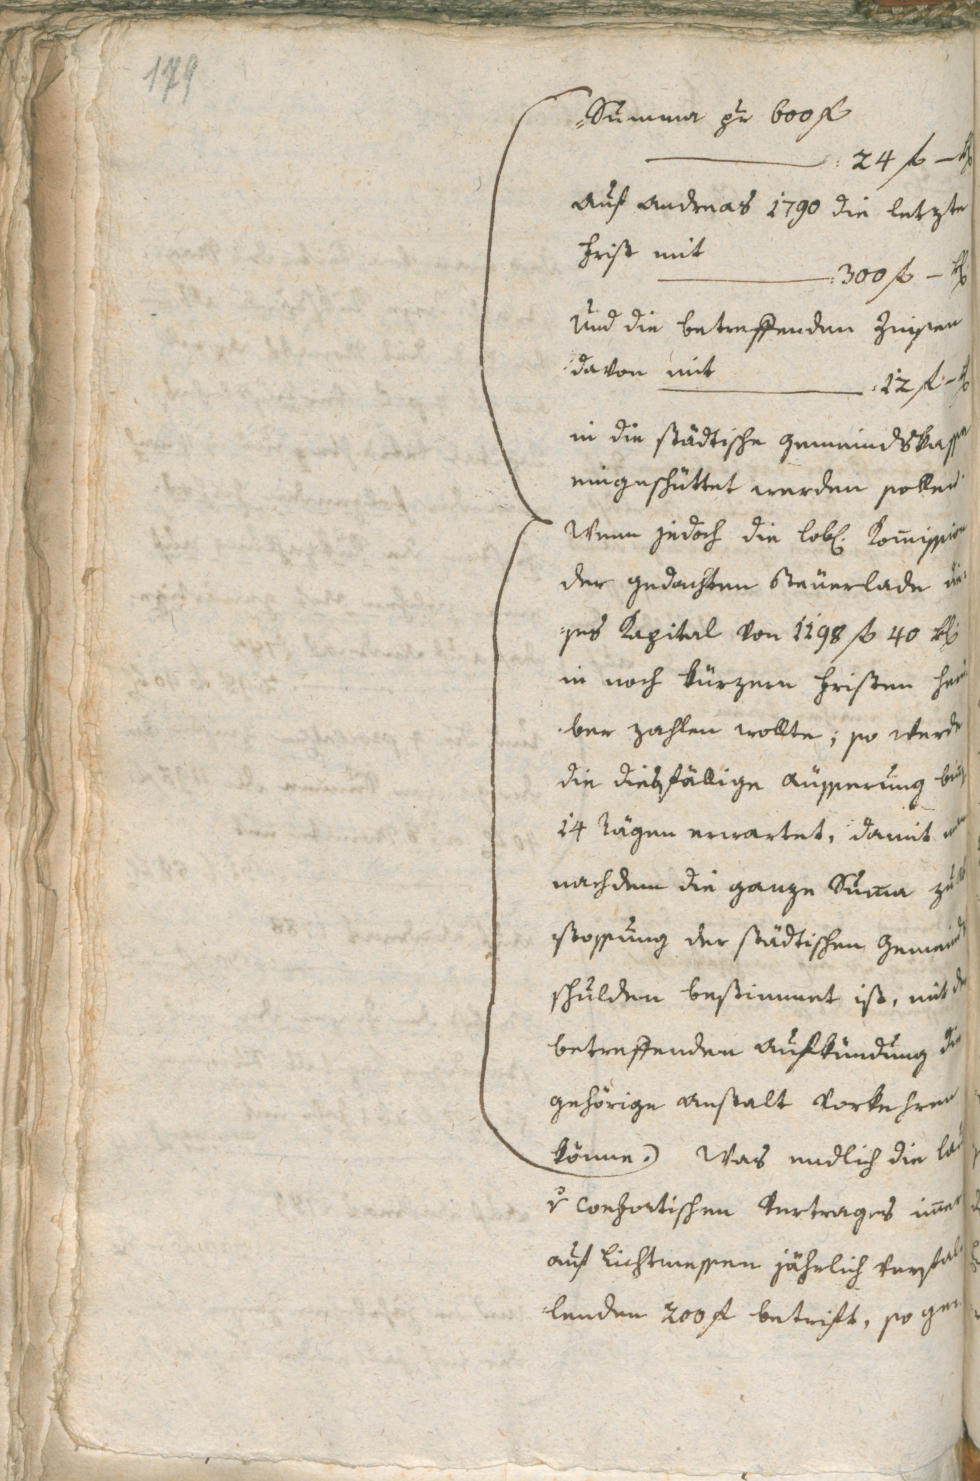 179
Summa pr 600 f
24 f – x
auf Andreas 1790 die letzte
Frist mit
300 f – x
und die betreffenden Zinsen
davon mit
12 f – x
in die städtische Gemeindskasse
eingeschüttet werden sollen.
Wenn jedoch die lobl. Kommission
der gedachten Steuerlade die-
ses Kapital von 1198 f 40 x
in noch kürzern Fristen
ber zahlen wollte; so werde
die diesfällige Äusserung
14 Tägen erwartet, damit
nachdem die ganze Suma zu
stossung der städtischen Gemeind
schulden bestimmet ist, mit
betreffenden Aufkündung die
gehörige Anstalt vorkehren
könne.) Was endlich die
Vertrages immer
auf Lichtmessen jährlich verfal-
lenden 200 f betrift, so